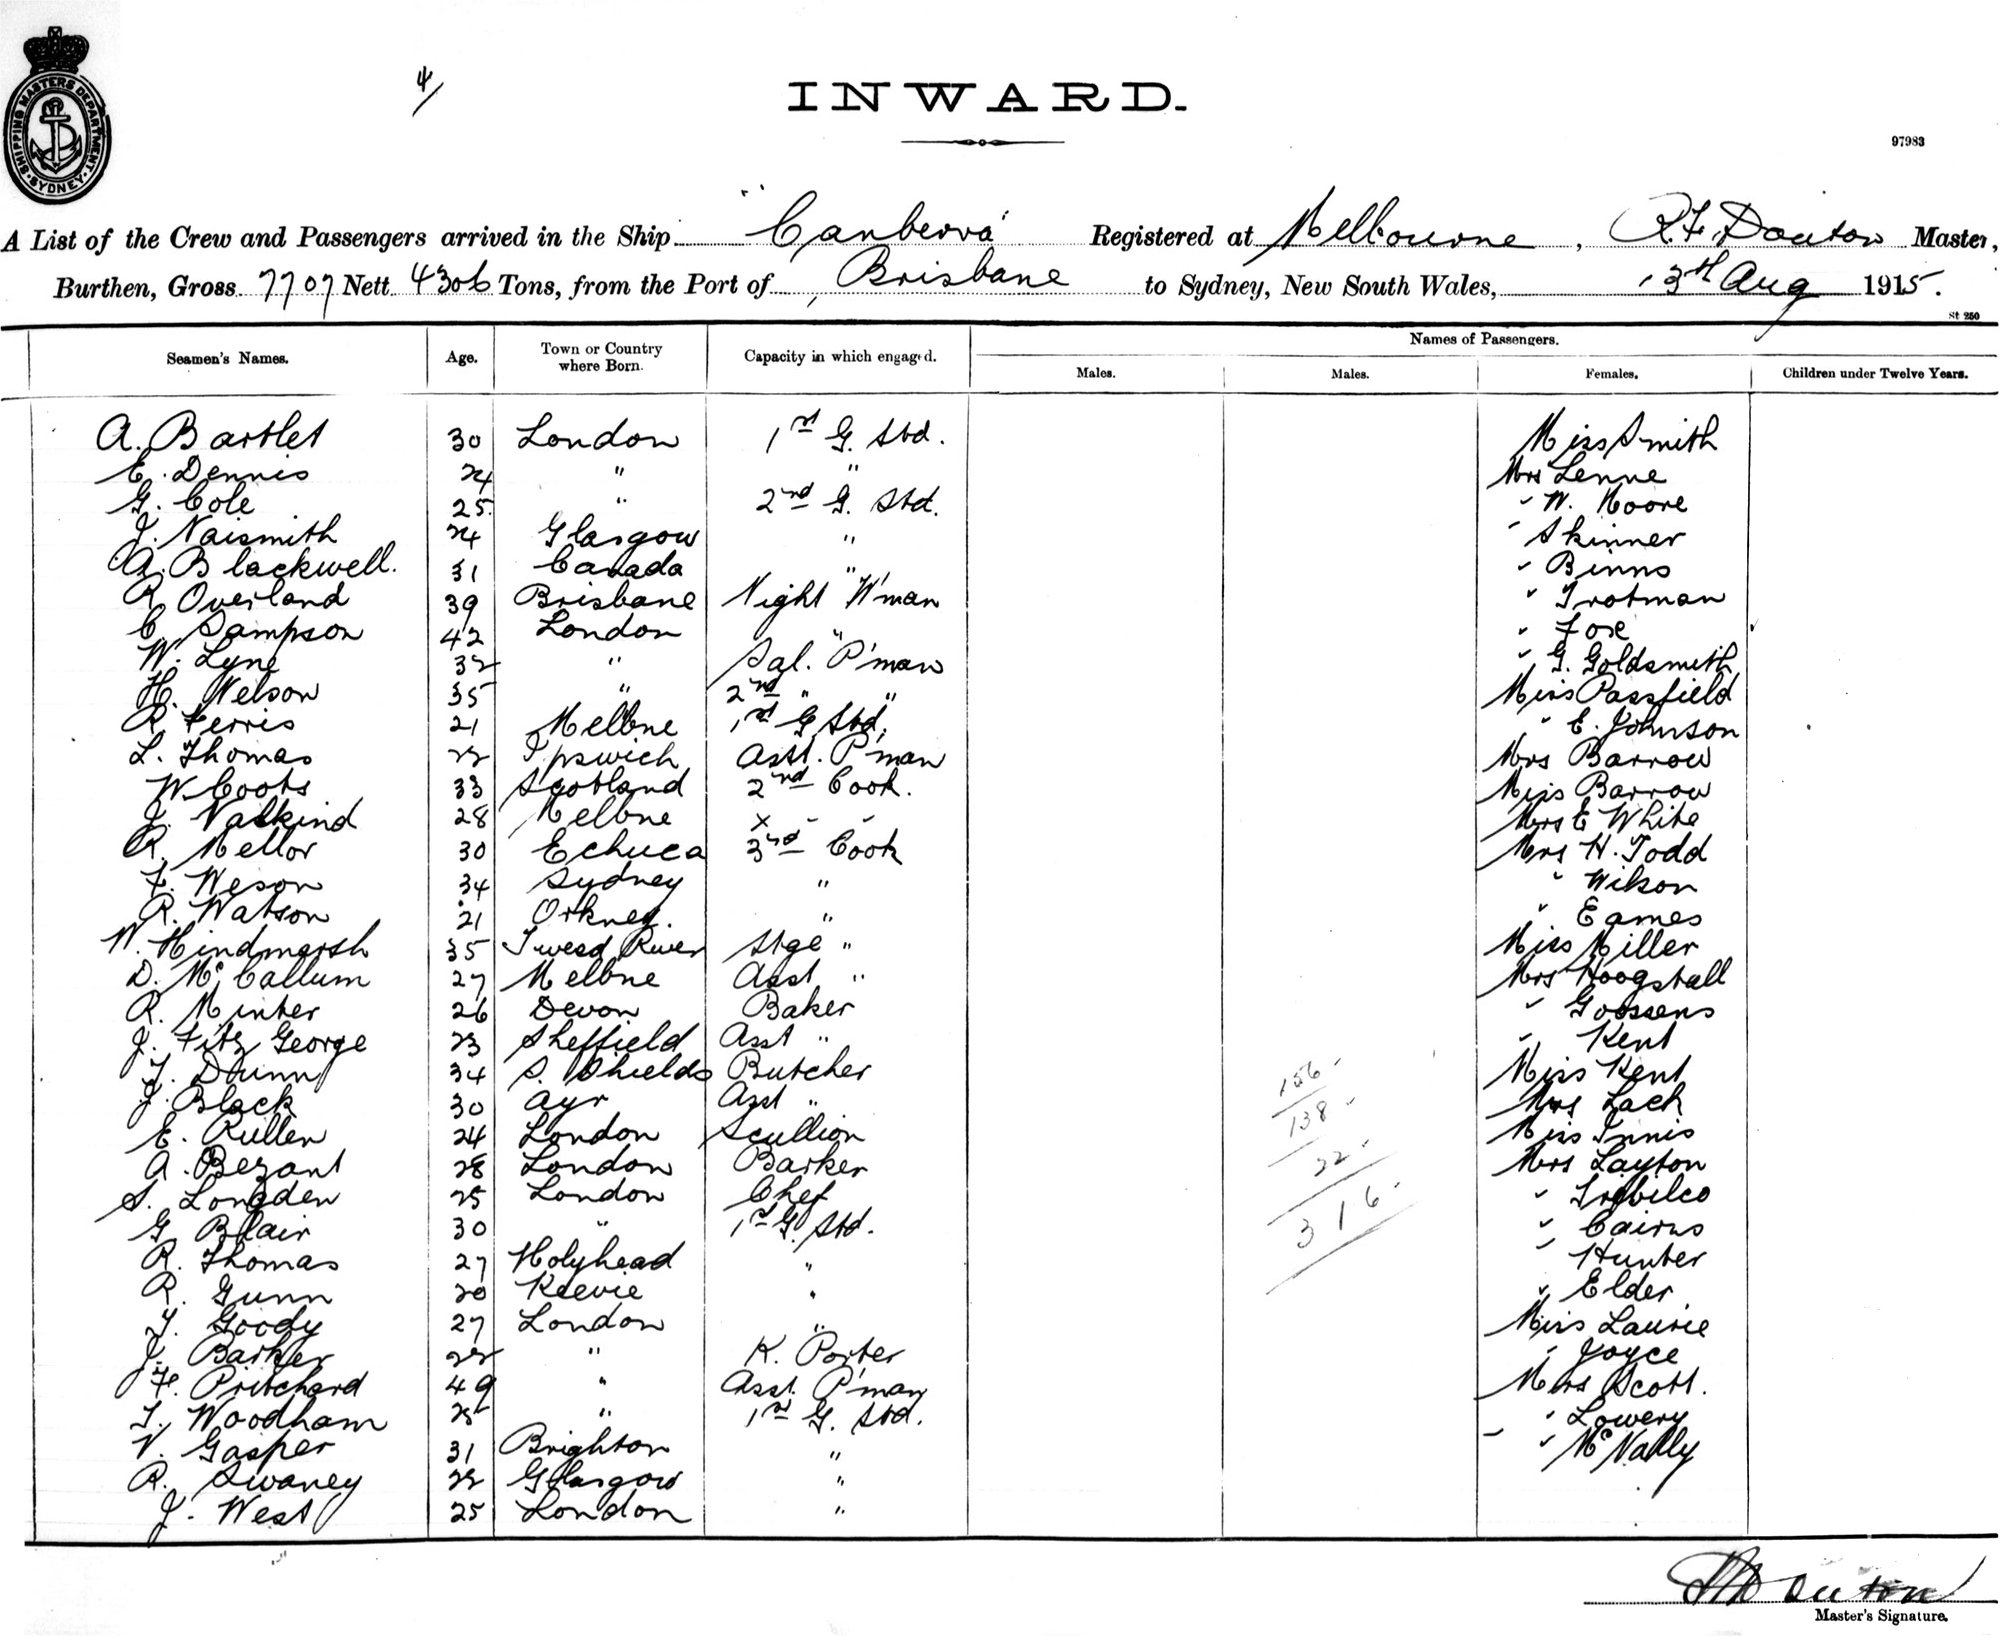 4/
INWARD.
SHIPPING MASTERS DEPARTMENT SYDNEY
97983
A List of the Crew and Passengers arrived in the Ship "Canberra" Registered at Melbourne, R.F. Master,
Burthen, Gross 7707 Nett 4306 Tons, from the Port of Brisbane to Sydney, New South Wales, 13th Aug 1915.
St 250
Names of Passengers.
Seamen's Names. Age. Town or Country where Born. Capacity in which engaged. Males. Males. Females. Children under Twelve Years.
A. Bartlet 30 London 1st G. Std. Miss Smith
E. Dennis 24 " " Mrs Lenne
G. Cole 25 " 2nd G. Std. " W. Moore
J. Naismith 24 Glasgow " " Skinner
A. Blackwell. 31 Canada " " Binns
R. Overland 39 Brisbane Night W'man " Trotman
C. Sampson 42 London " " Fox
W. Lyne 32 " Sal. P'man " G. Goldsmith
H. Nelson 35 " 2nd " " Miss Passfield
R Ferris 21 Melbne 1st G Std. " E. Johnson
L. Thomas 22 Ipswich Asst. P'man Mrs Barrow
W. Coots 33 Scotland 2nd Cook. Miss Barrow
J. Valkind 28 Melbne x " " Mrs E White
R. Mellor 30 Echuca 3rd Cook Mrs H. Todd
F. Weson 34 Sydney " " Wilson
R. Watson 21 Orkney. " " Eames
W. Hindmarsh 35 Tweed River Stge " Miss Miller
D. McCallum 27 Melbne Asst " Mrs Hoogstall
R. Minter 26 Devon Baker " Goossens
J. Fitz George 23 Sheffield Asst " " Kent
T. Dunn 34 S. Shields Butcher Miss Kent
J. Black 30 Ayr Asst " Mrs Lack
E. Rullen 24 London Scullion Miss Innis
A. Bezant 28 London Barker Mrs Layton
S. Longden 25 London Chef " Trebilco
G Blair 30 " 1st G. Std. " Cairns
R. Thomas 27 Holyhead " " Hunter
R. Gunn 20 " " Elder
T. Goody 27 London " Miss Laurie
J. Barker 22 " K. Porter " Joyce
F. Pritchard 49 " Asst. P'man Mrs Scott.
T. Woodham 25 " 1st G. Std. " Lowery
V. Gasper 31 Brighton " " McNally
R. Swaney 22 Glasgow "
J. West 25 London "
156
138
22
316
Master's Signature.